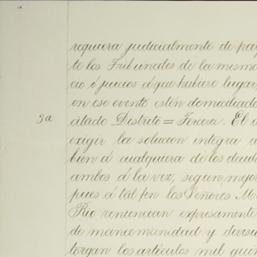 requiera judicialmente de pag
te los Tribunales de la misma
cio ó juicios á que hubiere lugar,
en ese evento estén domiciliado
citado Distrito = Tercera. El a
3a
exigir la solucion integra a
bien á cualquiera de los deudo
ambos á la vez, segun mejor
pues á tal fin los Señores M
Rio renuncian espresamente
de mancomunidad y divisio
torgan los artículos mil quin